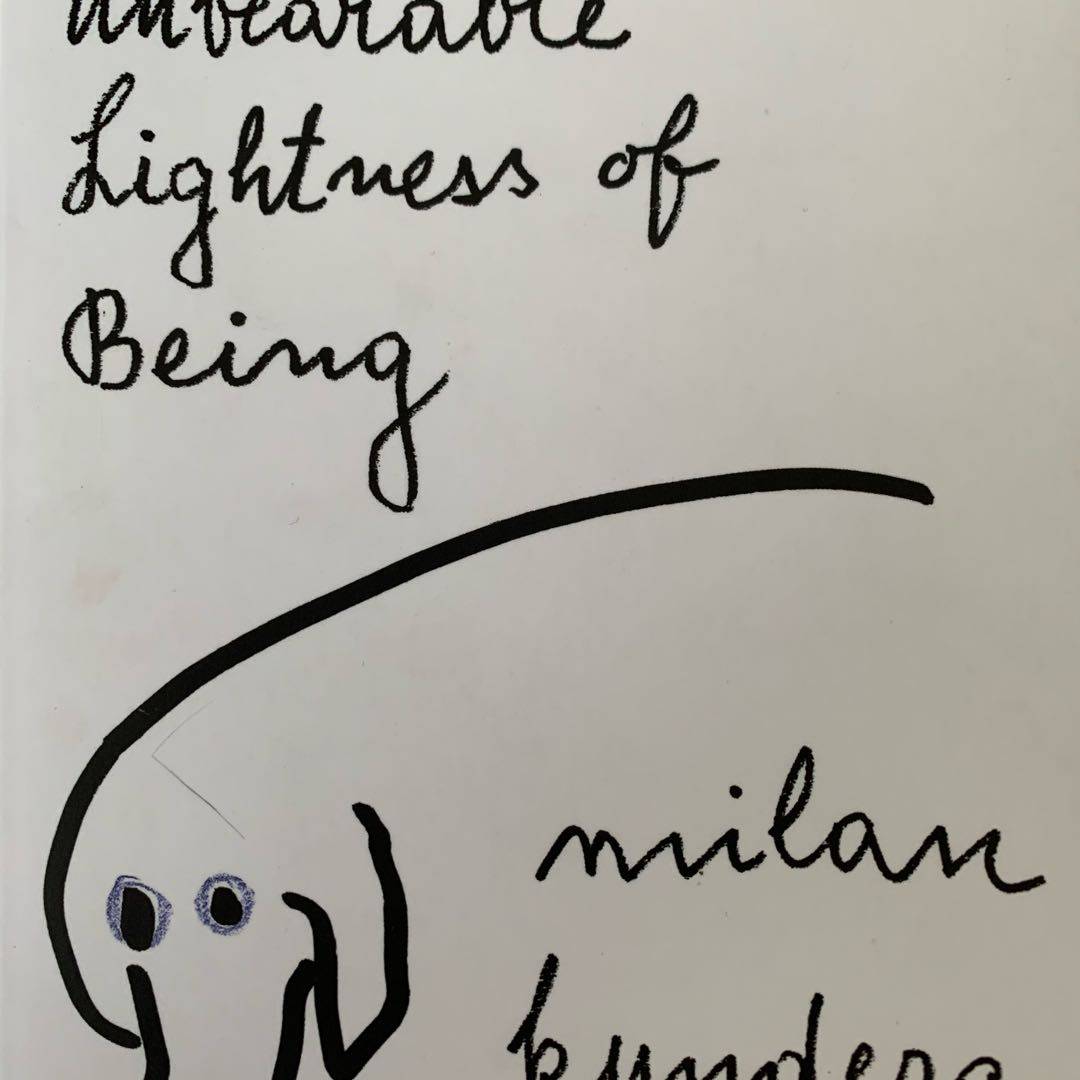 unbearable
Lightness of
Being
milan
kundera